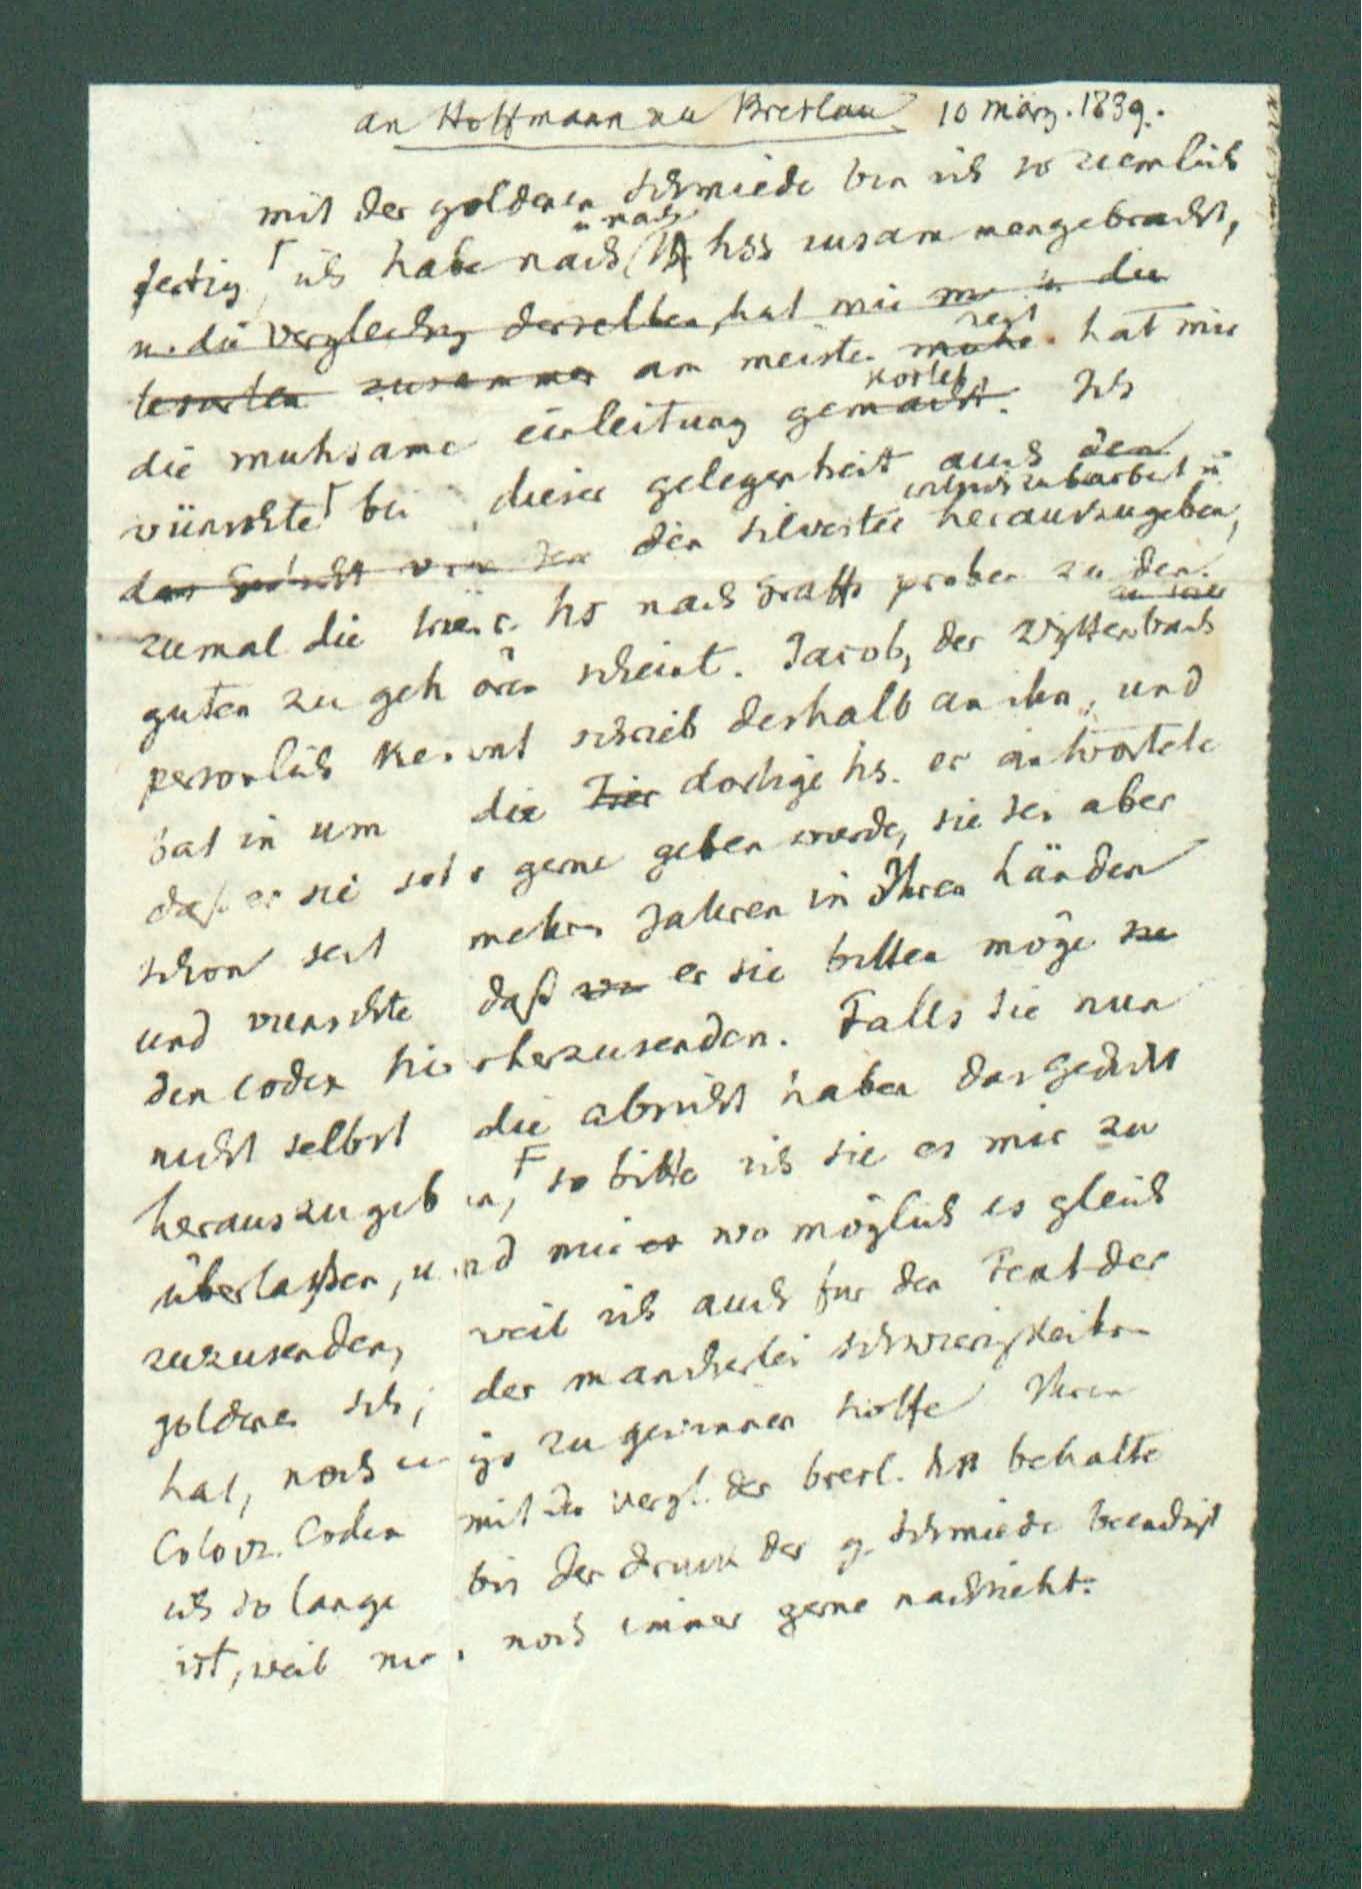 an Hoffmann zu Breslau 10 März. 1839.
mit der goldenen Schmiede bin ich so ziemlich
u nach
fertig, ich habe nach hss zusammengebracht,
u. die Vergleichg derselben, hat mir u die
lesarten zusammen am meisten mühe hat mir
zeit
die muhsame einleitung gemacht. Ich
kostet
wünschte bei dieser gelegenheit auch den
das Gedicht von den den Silvester herauszugeben,
zumal die trier. hs nach Graffs proben zu den
guten zu gehören scheint. Jacob, der Wyttenbach
personlich kennt schrieb deshalb an ihn, und
bat in um die Trier dortige hs. er antwortete
daß er sie sehr gerne geben wurde, sie sei aber
schon seit mehrn Jahren in Ihren händen
und wunschte daß er sie bitten möge sie
den codex hierherzusenden. Falls Sie nun
nicht selbst die absicht haben das Gedicht
herauszugeben, so bitte ich sie es mir zu
überlaßen, und mir es wo möglich es gleich
zuzusenden, weil ich auch fur den Text der
goldenen Sch, der mancherlei schwierigkeiten
hat, noch zu gewinnen hoffe Ihren
Colocz. Codex mit der vergl. der bresl. hs behalte
ich so lange bis der druck der g. Schmiede beendigt
ist, weil man noch immer gerne nachsieht.